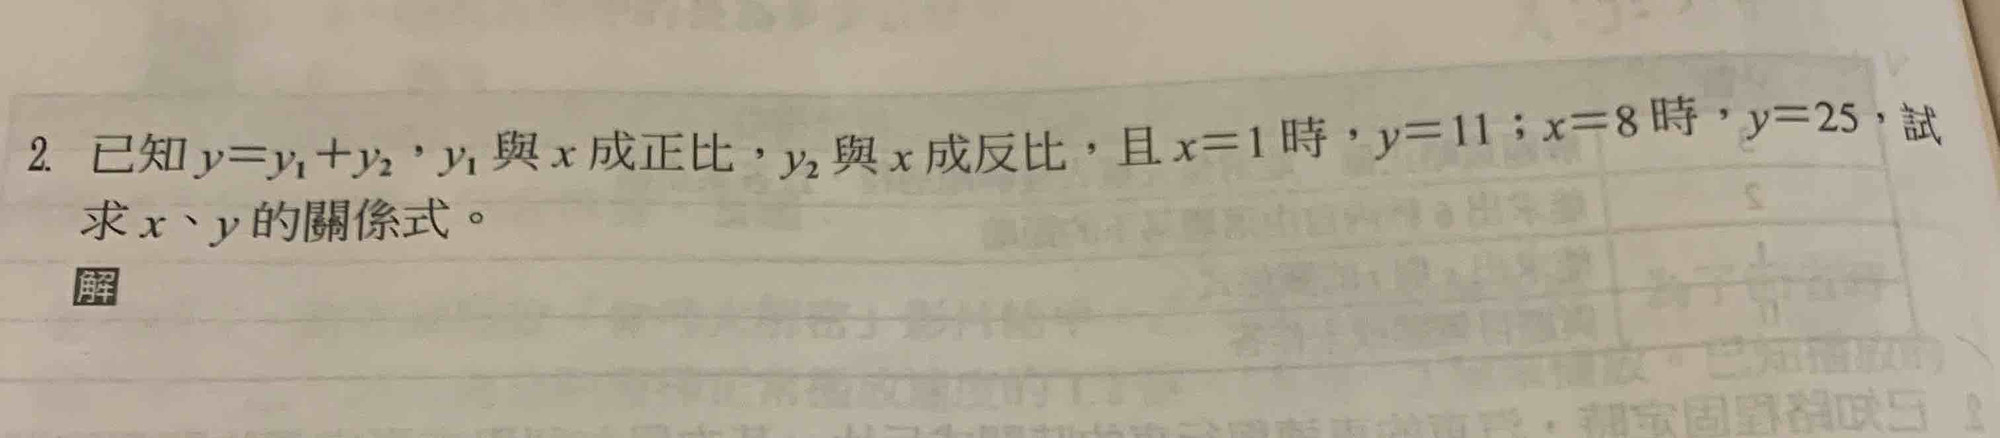 2. 已知 y=y₁+y₂，y₁ 與 x 成正比，y₂ 與 x 成反比，且 x=1 時，y=11；x=8 時，y=25，試
求 x、y 的關係式。
解